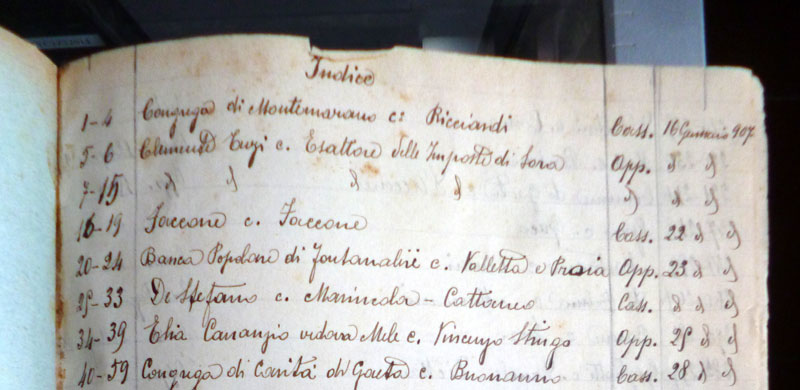 Indice
1-4 Congrega di Montemarano c: Ricciardi Cass. 16 Gennaio 907
5-6 Clemente c. Esattore delle Imposte di Sora App. " "
7-15 " " " " " " "
16-19 Jaccone c. Jaccone Cass. 22 " "
20-24 Banca Popolare di c. Valletta o Praia App. 23 " "
25-33 De Stefano c. Marincola - Cattaneo Cass. " " "
34-39 Elia vedova Mele c. Vincenzo Stingo App. 25 " "
40-59 Congrega di Carità di Gaeta c. Buonanno Cass. 28 " "